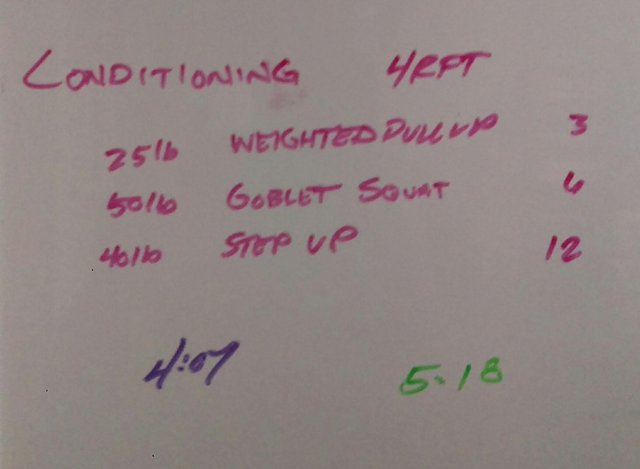 CONDITIONING 4RFT
25lb WEIGHTED PULL UP 3
50lb GOBLET SQUAT 6
40lb STEP UP 12
4:07 5:18